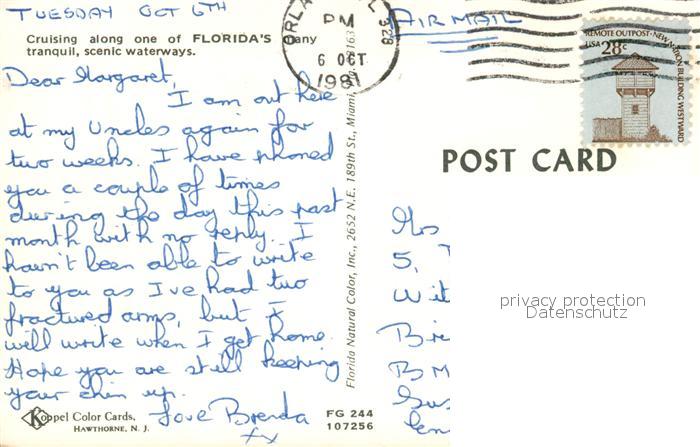 TUESDAY OCT 6TH
Cruising along one of FLORIDA'S many
tranquil, scenic waterways.
Dear Margaret,
I am out here
at my Uncles again for
two weeks. I have phoned
you a couple of times
during the day this past
month with no reply. I
havn't been able to write
to you as I've had two
fractured arms, but I
will write when I get home.
Hope you are still keeping
your chin up.
Love Brenda
xx
Koppel Color Cards,
HAWTHORNE, N. J.
FG 244
107256
Florida Natural Color, Inc., 2652 N.E. 189th St., Miami,
PM
6 OCT
1981
328
AIR MAIL
REMOTE OUTPOST·NEW NATION BUILDING WESTWARD
USA 28c
POST CARD
Mrs
5,
privacy protection
Datenschutz